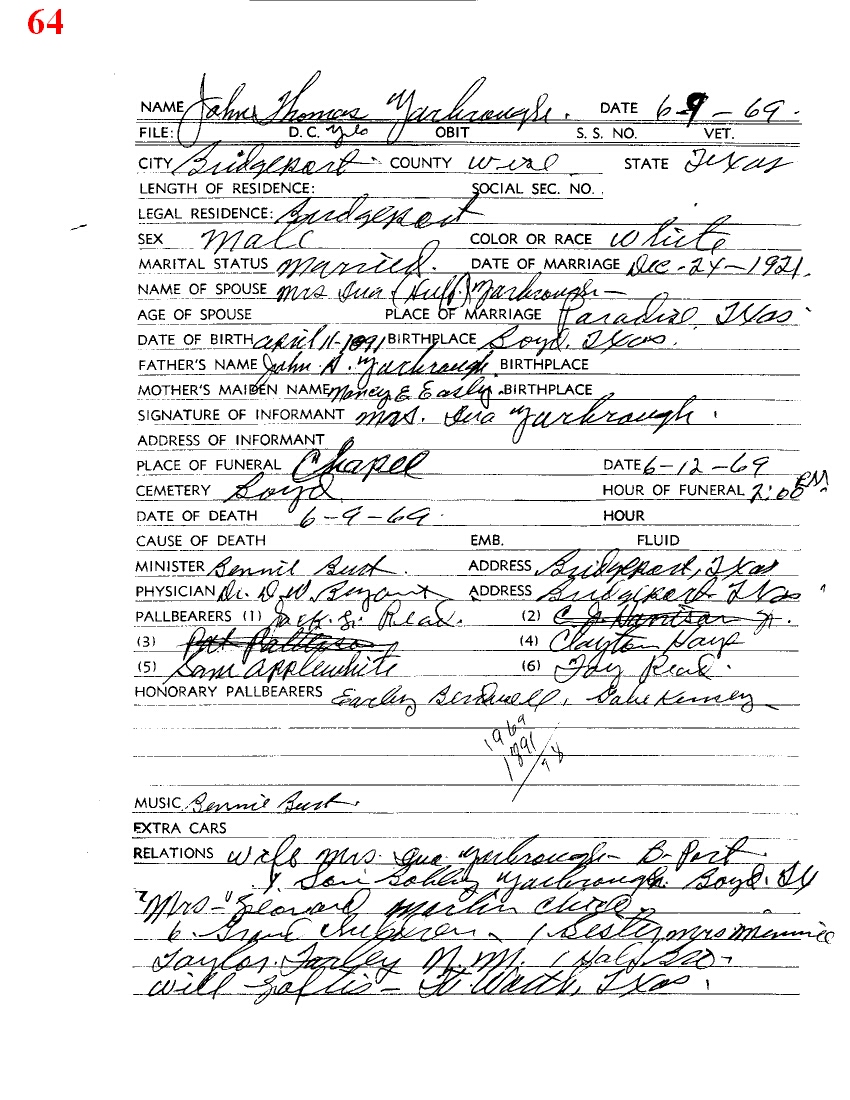 64
NAME John Thomas Yarbrough. DATE 6-9-69.
FILE: D.C. yes OBIT S. S. NO. VET.
CITY Bridgeport COUNTY Wise STATE Texas
LENGTH OF RESIDENCE: SOCIAL SEC. NO.
LEGAL RESIDENCE: Bridgeport
SEX Male COLOR OR RACE White
MARITAL STATUS Married. DATE OF MARRIAGE Dec-24-1921.
NAME OF SPOUSE Mrs Iua (Huff) Yarbrough
AGE OF SPOUSE PLACE OF MARRIAGE Paradise, Texas
DATE OF BIRTH April 11-1891 BIRTHPLACE Boyd, Texas.
FATHER'S NAME John H. Yarbrough BIRTHPLACE
MOTHER'S MAIDEN NAME Nancy E Easly BIRTHPLACE
SIGNATURE OF INFORMANT Mrs. Iua Yarbrough.
ADDRESS OF INFORMANT
PLACE OF FUNERAL Chapel DATE 6-12-69
CEMETERY Boyd HOUR OF FUNERAL 2:00 PM
DATE OF DEATH 6-9-69 HOUR
CAUSE OF DEATH EMB. FLUID
MINISTER Bennie Bust. ADDRESS Bridgeport, Texas
PHYSICIAN Dr. D.W. Bryant ADDRESS Bridgeport Texas
PALLBEARERS (1) Jack Read. (2) C J Jr.
(3) Pat Patterson (4) Clayton Hays
(5) Sam Applewhite (6) Fay Read.
HONORARY PALLBEARERS Earley Birdwell, Gabe Kinsey
1969
1891
78
MUSIC Bennie Bust.
EXTRA CARS
RELATIONS Wife Mrs. Iua Yarbrough - B-Port
1 Son Yarbrough. Boyd. TX
Mrs Leonard Martin Chico
6 Grand Children. 1 Sister Mrs Minnie
Taylor. Farley N.M. 1 Half Bro.
Will - Ft. Worth, Texas.